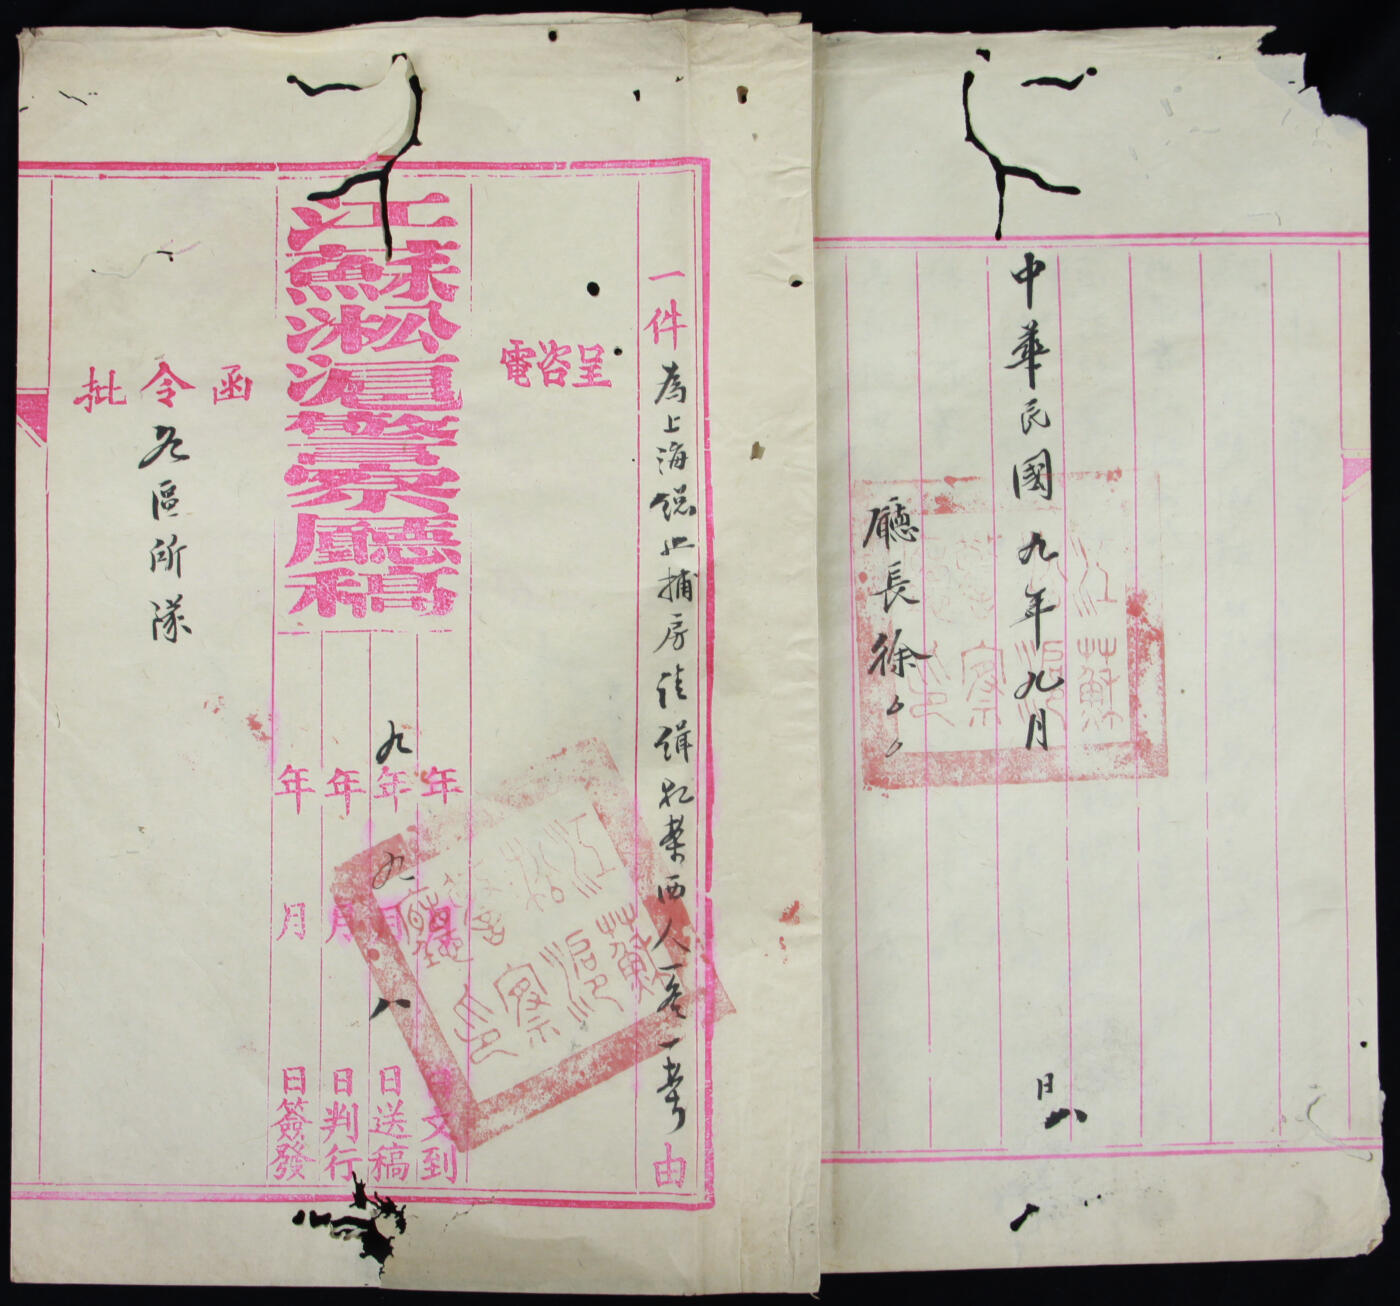 中華民國九年九月
日
八
廳長徐
江蘇淞滬警察廳印
一件
為上海總巡捕房
西人一
由
呈咨電
江蘇淞滬警察廳稿
年月文到
九年九月八日送稿
年月日判行
年月日簽發
江蘇淞滬警察廳印
函令批
各區所隊